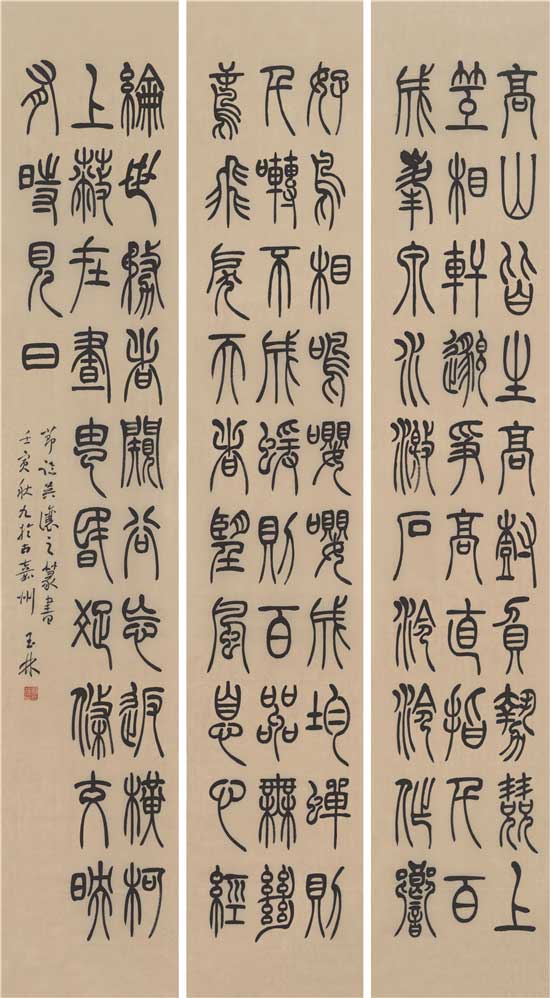 高山皆生高樹負勢競上
互相軒邈爭高直指千百
成峯泉水激石泠泠作響
好鳥相鳴嚶嚶成均蟬則
千囀不成蝯則百嘂無絕
鳶飛戾天者望風息心經
綸世務者闚谷忘返橫柯
上蔽在晝猶昏疏條交映
有時見日
節臨吳讓之篆書
壬寅秋九於古嘉州 玉林